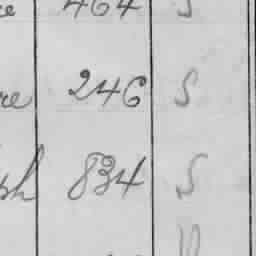 464 S
re 246 S
ph 834 S